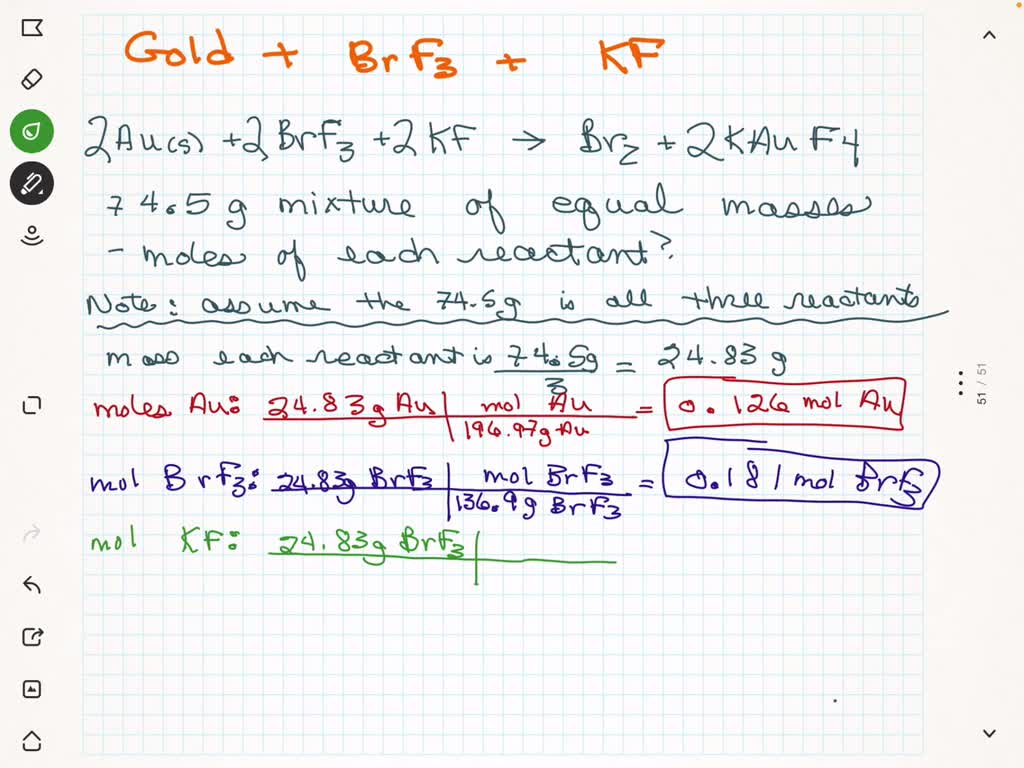 Gold + BrF3 + KF
2Au(s) + 2BrF3 + 2KF → Br2 + 2KAuF4
74.5g mixture of equal masses
- moles of each reactant?
Note: assume the 74.5g is all three reactants
mass each reactant is 74.5g/3 = 24.83 g
moles Au: 24.83g Au | mol Au / 196.97g Au = 0.126 mol Au
mol BrF3: 24.83g BrF3 | mol BrF3 / 136.9g BrF3 = 0.181 mol BrF3
mol KF: 24.83g BrF3
51 / 51